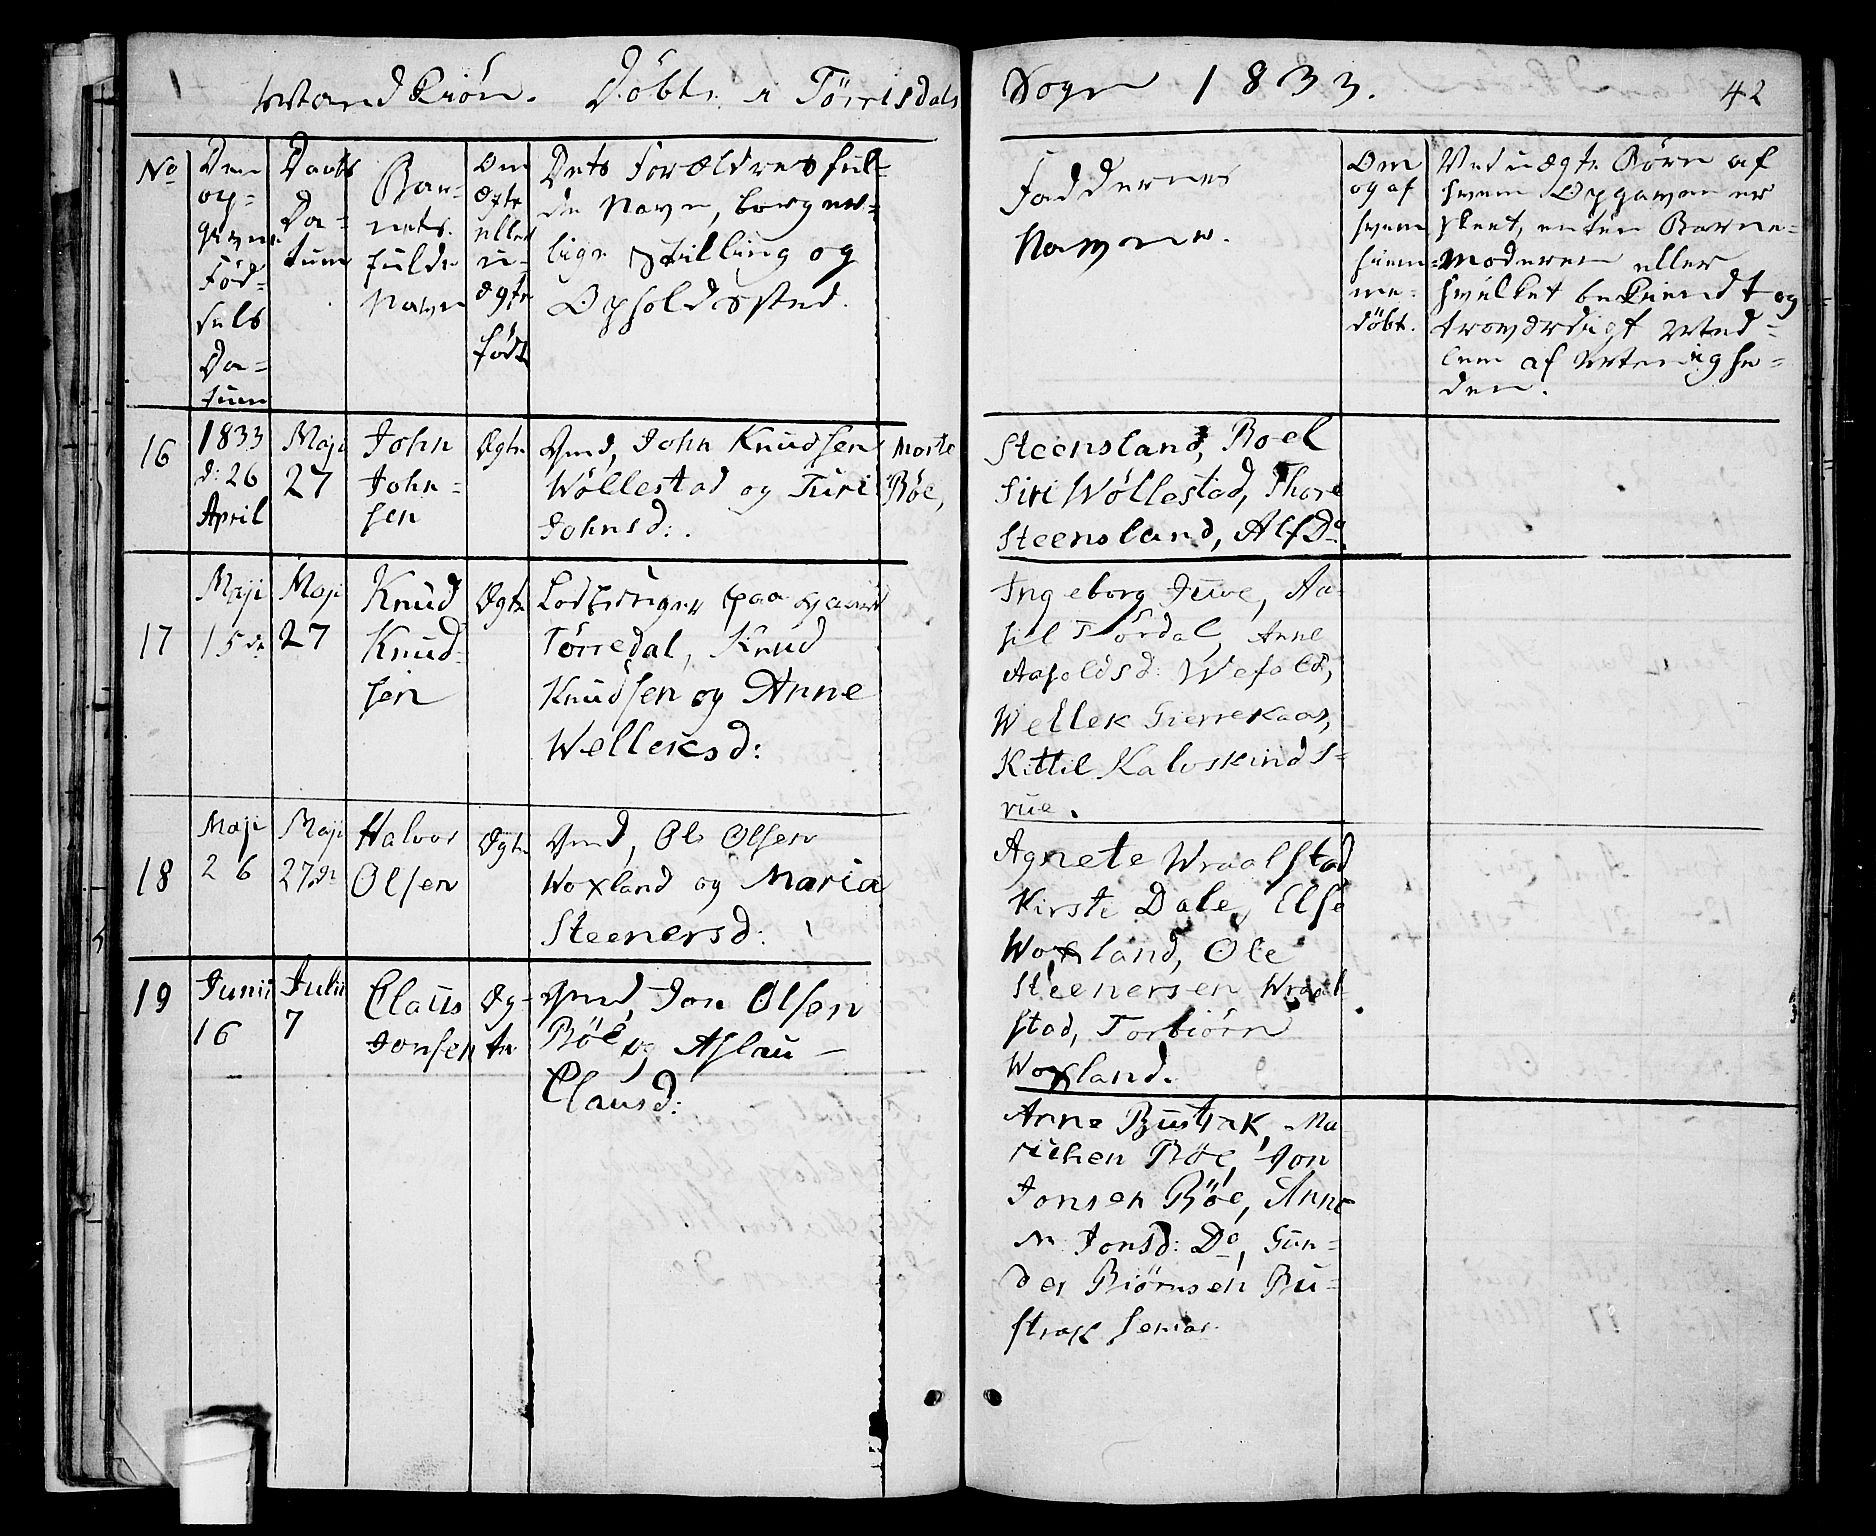 Mandkiøn. Döbte i Törrisdals Sogn 1833.
42
No
Den
op-
givne
Fød-
sels
Da-
tum
Daabs
Da-
tum
Bar-
nets
fulde
Navn
Om
Ægte
eller
u-
ægte
født
Dets Forældres ful-
de Navn, borger-
lige Stilling og
Opholdssted.
Faddernes
Navne.
Om
og af
hvem
hiem-
me-
döbt.
Ved uægte Börn af
hvem Opgaven er
skeet, enten Barne-
Moderen eller
hvilket bekiendt og
troværdigt Med-
lem af Menighe-
den.
16
1833
d: 26
April
Maji
27
John
John-
sen
Ægte
Gmd, John Knudsen
Wöllestad og Turi
Johnsd:.
Morte
Böe,
Steensland, Roel
Siri Wöllestad, Thore
Steensland, Alf Do.
17
Maji
15de
Maji
27
Knud
Knud-
sen
Ægte
Lodsidnger paa Gaard
Törredal, Knud
Knudsen og Anne
Welleksd:
Ingeborg Juve, Aa-
sil Tördal, Anne
Aasoldsd: Wefald,
Wellek Gierrekaas,
Kittil Kalvskinds-
rue.
18
Maji
26
Maji
27de
Halvor
Olsen
Ægte
Gmd, Ole Olsen
Woxland og Maria
Steenersd:
Agnete Wraalstad
Kirsti Dale, Else
Woxland, Ole
Steenersen Wraal-
stad, Torbiörn
Woxland.
19
Junii
16
Julii
7
Claus
Jonsen
Æg-
te
Gmd, Jon Olsen
Böe og Aslau
Clausd:
Anne Bustrak, Ma-
richen Böe, Jon
Jonsen Böe, Anne
M. Jonsd: Do, Gun-
der Biörnsen Bu-
strak